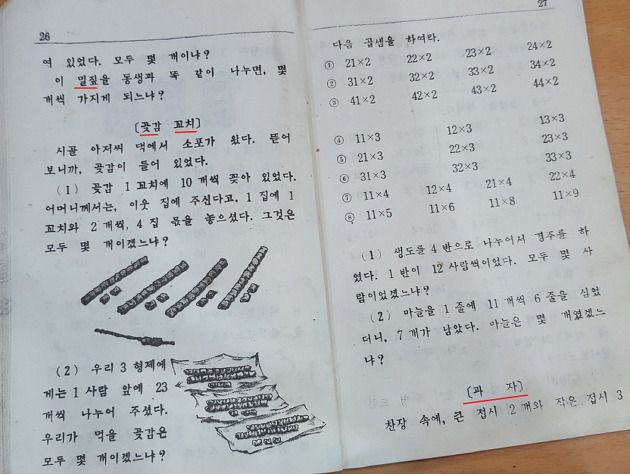 26
여 있었다. 모두 몇 개이냐?
이 밀짚을 동생과 똑 같이 나누면, 몇
개씩 가지게 되느냐?
〔곶감 꼬치〕
시골 아저씨 댁에서 소포가 왔다. 뜯어
보니까, 곶감이 들어 있었다.
(1) 곶감 1 꼬치에 10 개씩 꽂아 있었다.
어머니께서는, 이웃 집에 주신다고, 1 집에 1
꼬치와 2 개씩, 4 집 몫을 놓으셨다. 그것은
모두 몇 개이겠느냐?
(2) 우리 3 형제에
게는 1 사람 앞에 23
개씩 나누어 주셨다.
우리가 먹을 곶감은
모두 몇 개이겠느냐?
27
다음 곱셈을 하여라.
① 21×2 22×2 23×2 24×2
② 31×2 32×2 33×2 34×2
③ 41×2 42×2 43×2 44×2
④ 11×3 12×3 13×3
⑤ 21×3 22×3 23×3
⑥ 31×3 32×3 33×3
⑦ 11×4 12×4 21×4 22×4
⑧ 11×5 11×6 11×8 11×9
(1) 생도를 4 반으로 나누어서 경주를 하
였다. 1 반이 12 사람씩이었다. 모두 몇 사
람이었겠느냐?
(2) 마늘을 1 줄에 11 개씩 6 줄을 심었
더니, 7 개가 남았다. 마늘은 몇 개였겠느
냐?
〔과 자〕
찬장 속에, 큰 접시 2 개와 작은 접시 3